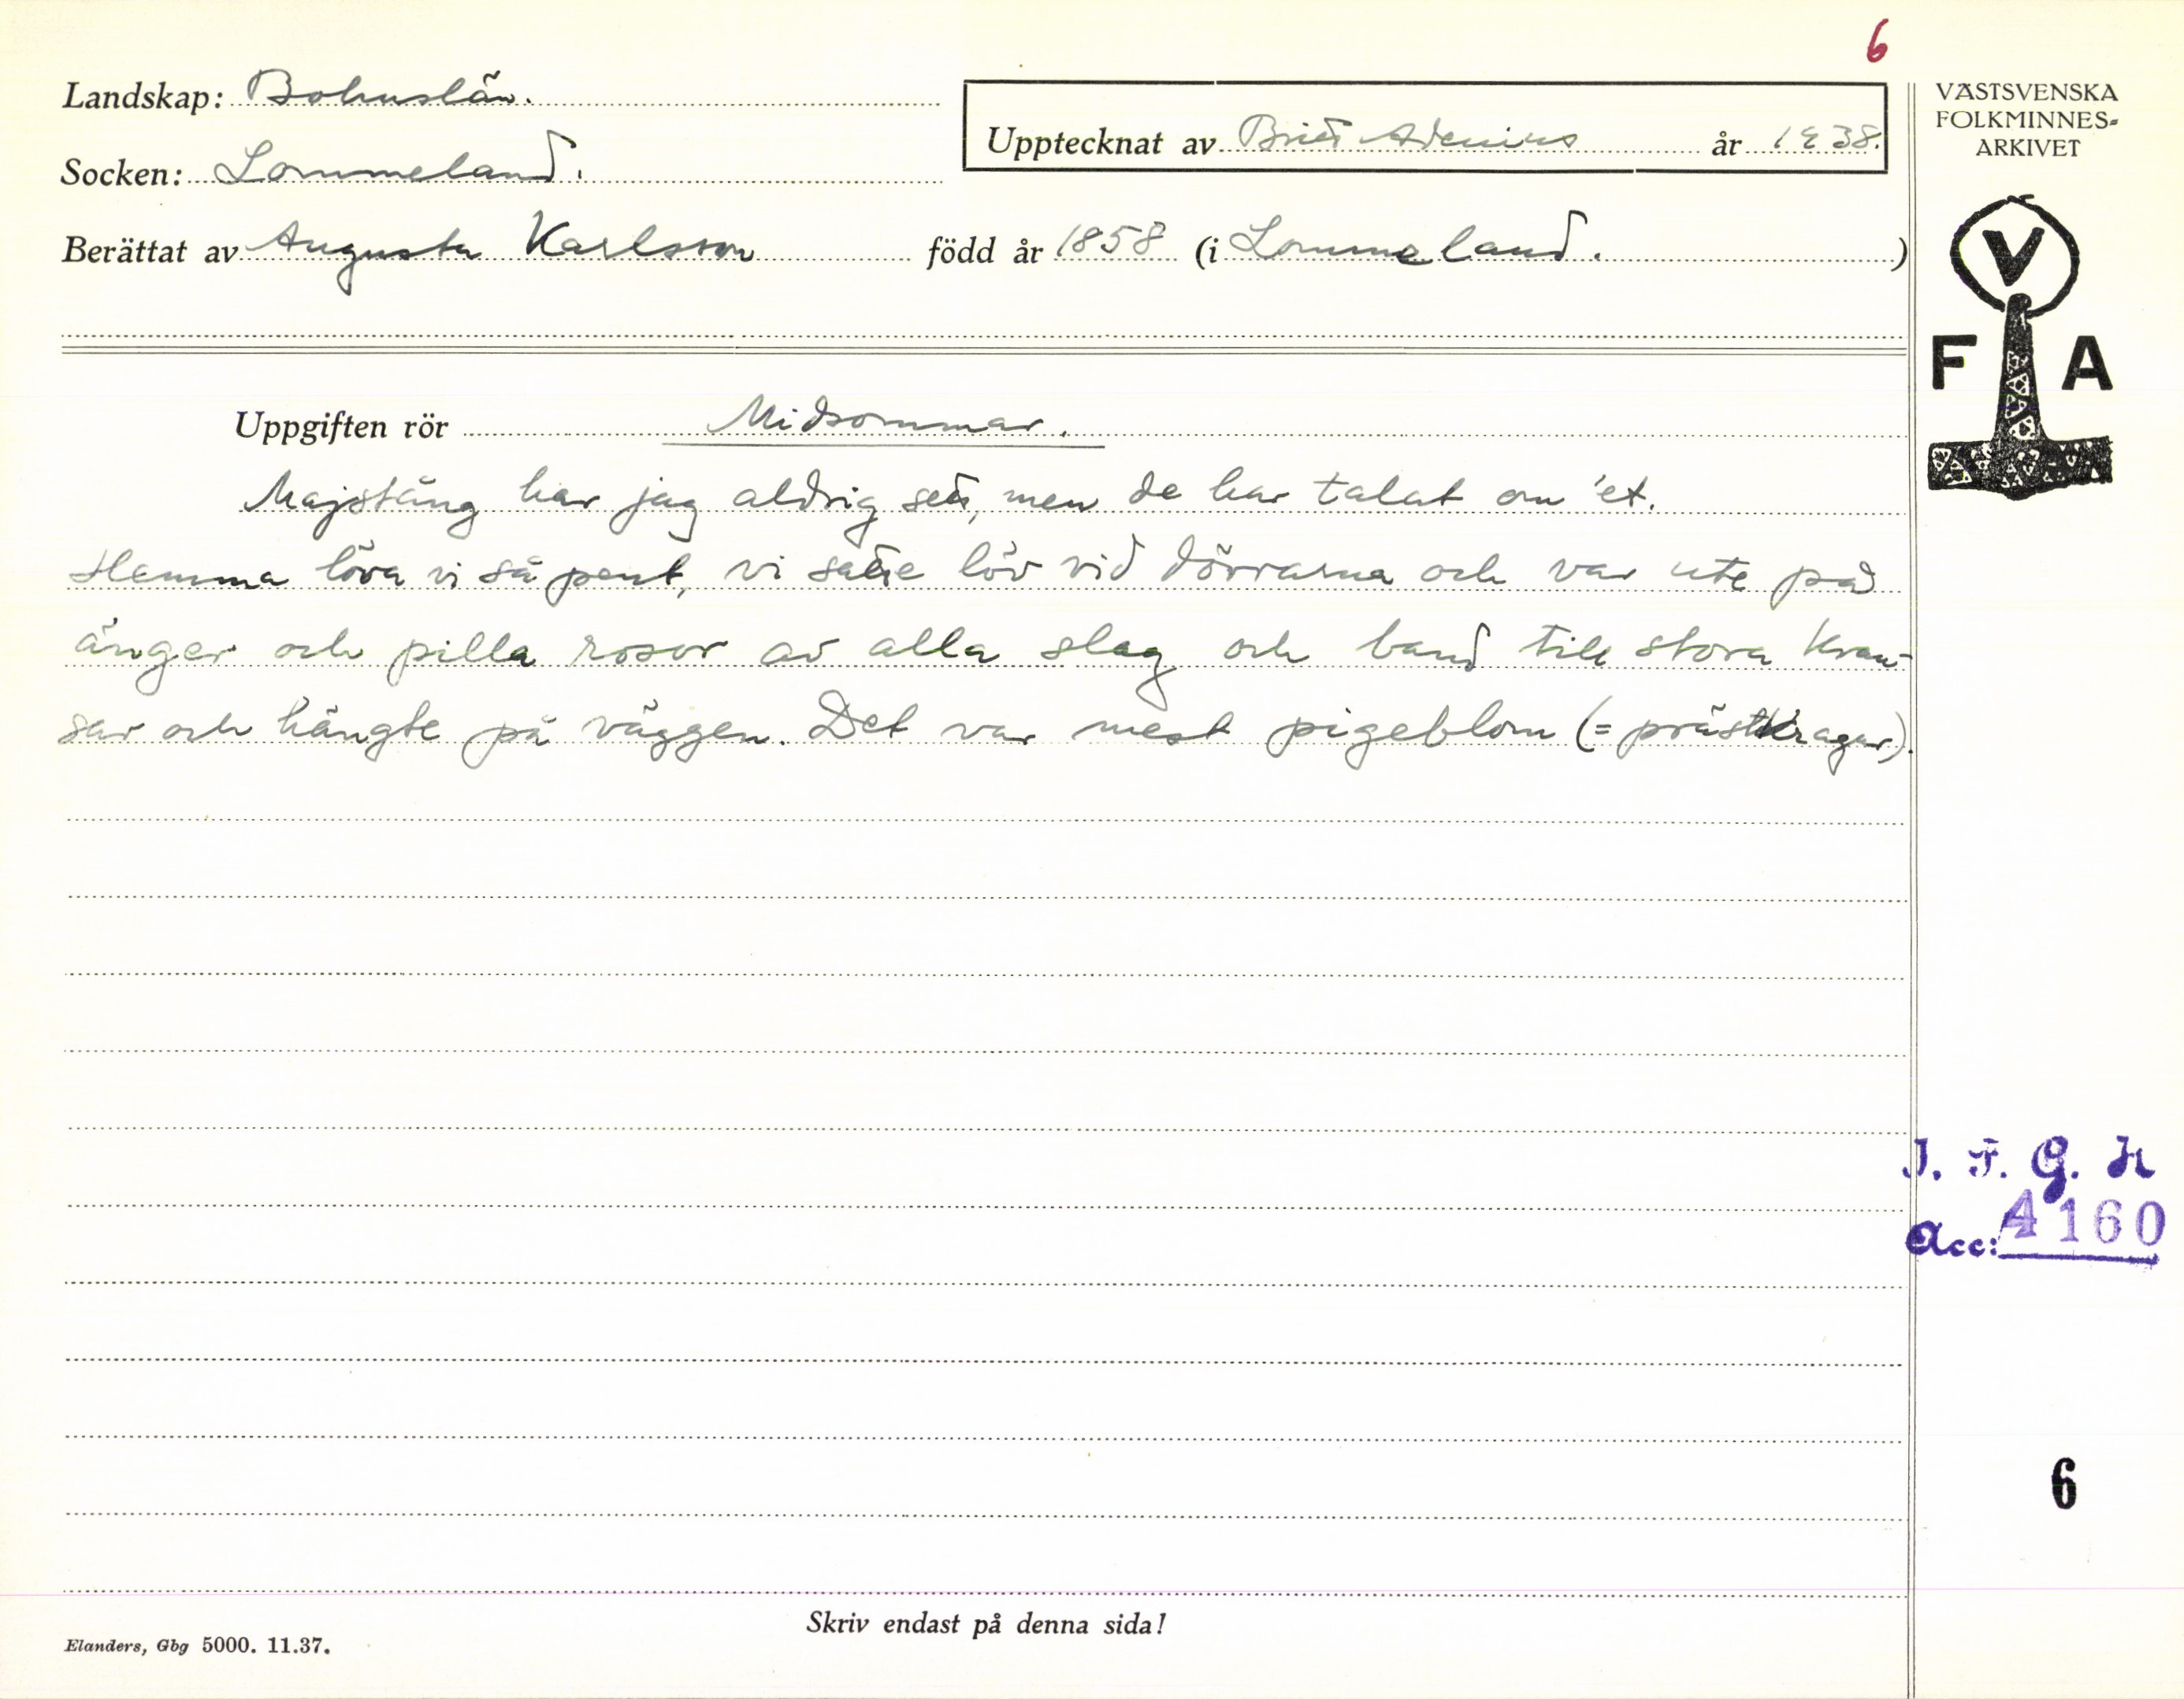 6
Landskap: Bohuslän.
Upptecknat av Brita Adenius år 1938.
Socken: Lommeland.
Berättat av Augusta Karlsson född år 1858 (i Lommeland. )
VÄSTSVENSKA
FOLKMINNES-
ARKIVET
V
F A
Uppgiften rör Midsommar.
Majstång har jag aldrig sett, men de har talat om 'et.
Hemma löva vi så pent, vi satte löv vid dörrarna och var ute på
änger och pilla rosor av alla slag och band till stora kran-
sar och hängte på väggen. Det var mest pigeblom (= prästkragar).
I. F. G. H
Acc: 4160
6
Skriv endast på denna sida!
Elanders, Gbg 5000. 11.37.